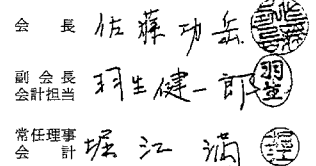 会長 佐藤功岳
副会長
会計担当 羽生健一郎 羽生
常任理事
会計 堀江満 堀江